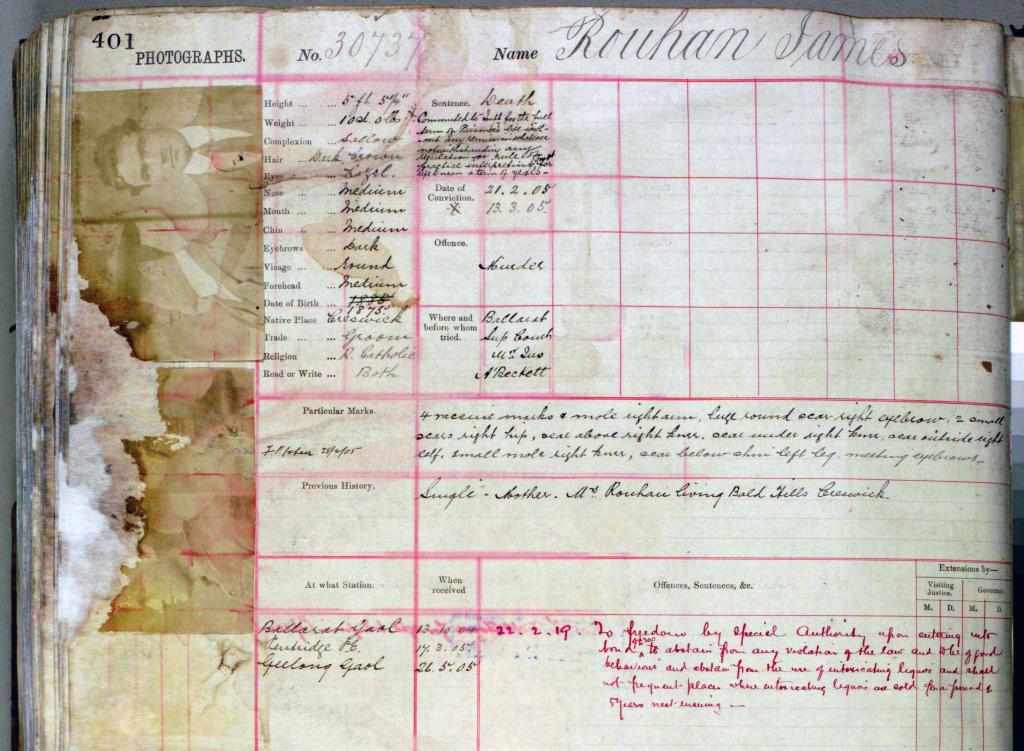 401
PHOTOGRAPHS.
No. 30737
Name Rouhan James
Height ... 5 ft 5¼"
Weight ... 10 st. 0 lbs
Complexion ... Sallow
Hair ... Dark Brown
Eyes ... Hazel.
Nose ... Medium
Mouth ... Medium
Chin ... Medium
Eyebrows ... Dark
Visage ... round
Forehead ... Medium
Date of Birth ... 1885
1875
Native Place Creswick
Trade ... Groom
Religion ... R. Catholic
Read or Write ... Both
Sentence. Death
Commuted to Impt for the full
term of Prisoner's life with-
out any remission whatever
notwithstanding any
regulation or rule of
practice interpreting for
life mean a term of years-
Date of Conviction. 21.2.05
X 13.3.05
Offence.
Murder
Where and before whom tried.
Ballarat
Sup Court
Mr Jus
A'Beckett
Particular Marks.
4 vaccine marks & mole right arm, large round scar right eyebrow, 2 small
scars right hip, scar above right knee, scar under right knee, scar outside right
calf, small mole right knee, scar below shin left leg. meeting eyebrows-
Previous History.
Single - Mother. Mrs Rouhan living Bald Hills Creswick
At what Station.
When received
Offences, Sentences, &c.
Extensions by—
Visiting Justice.
Governor
M. D. M. D.
Ballarat Gaol 13.10.04
Pentridge P.E. 17.3.05
Geelong Gaol 26.5.05
22.2.19. To freedom by Special Authority upon entering into
bond to abstain from any violation of the law and to be of good
behaviour and abstain from the use of intoxicating liquor and shall
not frequent places where intoxicating liquors are sold for a period of
5 years next ensuing —